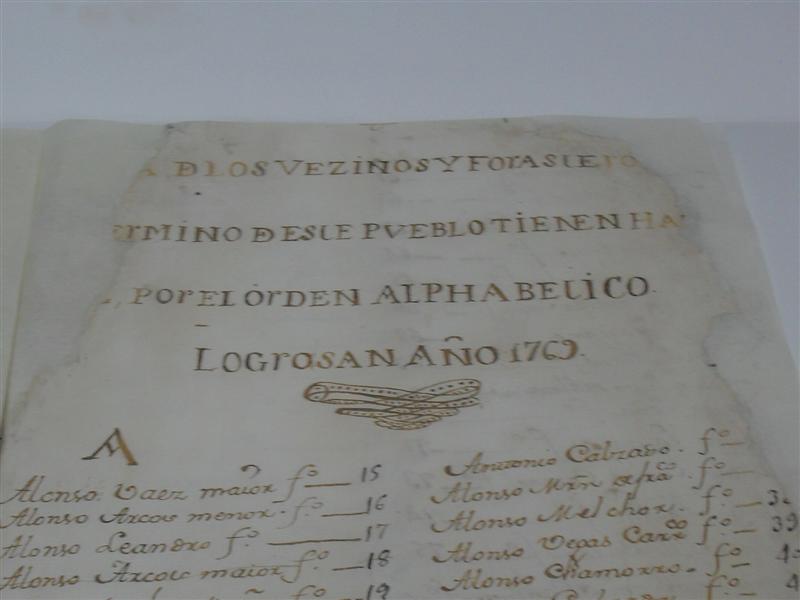 A DLOS VEZINOS Y FORASTERO
ERMINO DESTE PUEBLO TIENEN HA
POR EL ORDEN ALPHABETICO.
LOGROSAN AÑO 1769.
A
Alonso Vaez maior fo 15
Alonso Arcos menor. fo 16
Alonso Leandro fo 17
Alonso Arcos maior fo 18
19
Antonio Calzado. fo
Alonso Mrn fo
Alonso Melchor. fo 3
Alonso Vegas Carro fo 39
Alonso Chamorro. fo 4
4